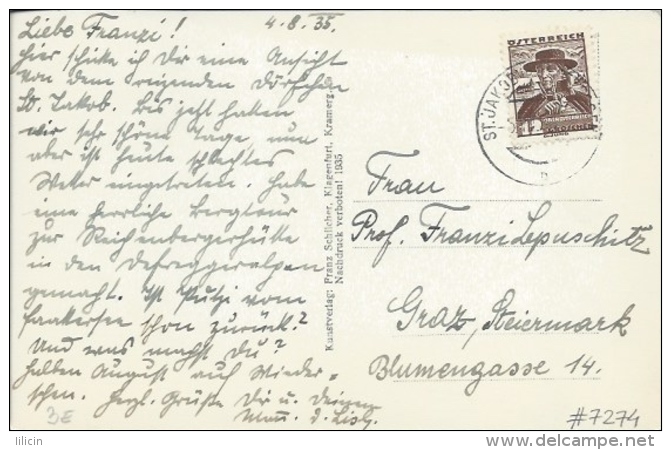 4.8.35.
Liebe Franzi!
Hier schicke ich Dir eine Ansicht
von dem reizenden Dörfchen
St. Jakob. Bis jetzt hatten
wir sehr schöne Tage nun
aber ist heute schlechtes
Wetter eingetreten. Habe
eine herrliche Bergtour
zur Reichenbergerhütte
in den Defreggeralpen
gemacht. Ist Putzi vom
Faakersee schon zurück?
Und was machst Du?
Halben August auf Wieder=
sehen. Herzl. Grüße Dir u. Deinem
Mann. d. Lisl.
Kunstverlag: Franz Schilcher, Klagenfurt, Kramerg.
Nachdruck verboten! 1935
ÖSTERREICH
12
ST. JAKOB
Frau
Prof. Franzi Lepuschitz
Graz, Steiermark
Blumengasse 14.
#7274
lilicin
www.delcampe.net